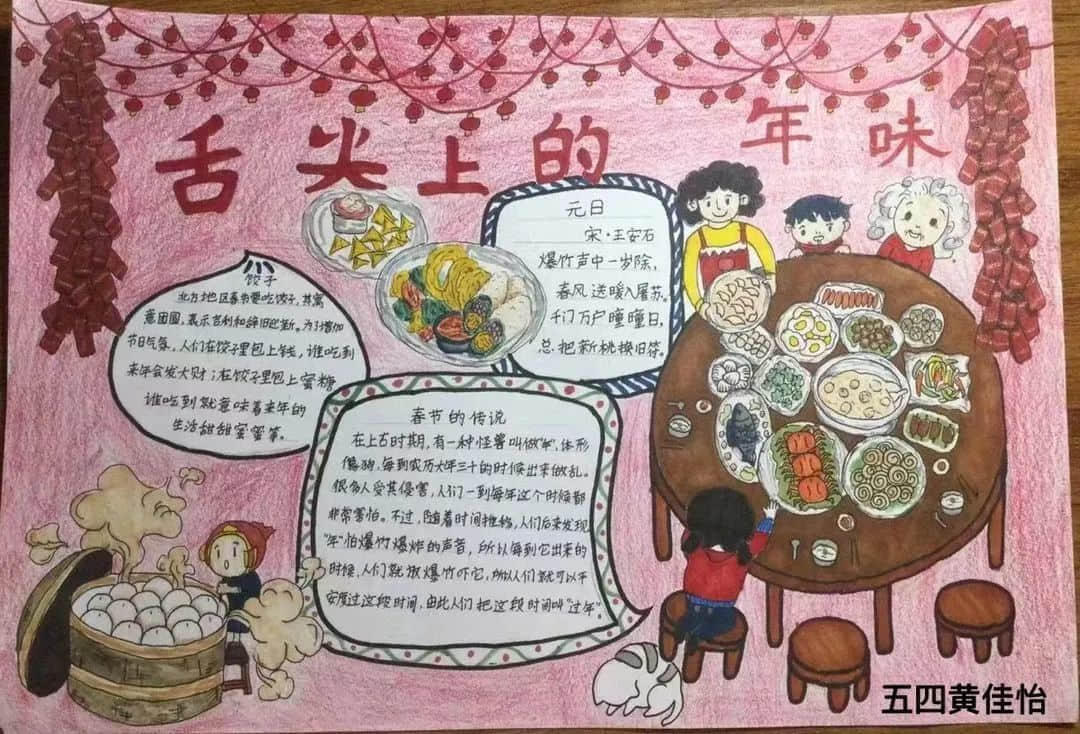 舌尖上的年味
饺子
北方地区春节要吃饺子,其寓
意团圆,表示吉利和辞旧迎新。为了增加
节日气氛,人们在饺子里包上钱,谁吃到
来年会发大财;在饺子里包上蜜糖
谁吃到就意味着来年的
生活甜甜蜜蜜等。
元日
宋·王安石
爆竹声中一岁除,
春风送暖入屠苏。
千门万户曈曈日,
总把新桃换旧符。
春节的传说
在上古时期,有一种怪兽叫做"年",体形
像狗,每到农历大年三十的时候出来做乱。
很多人受其侵害,人们一到每年这个时候都
非常害怕。不过,随着时间推移,人们后来发现
"年"怕爆竹爆炸的声音,所以每到它出来的
时候,人们就放爆竹吓它,所以人们就可以平
安度过这段时间,由此人们把这段时间叫"过年"。
五四黄佳怡